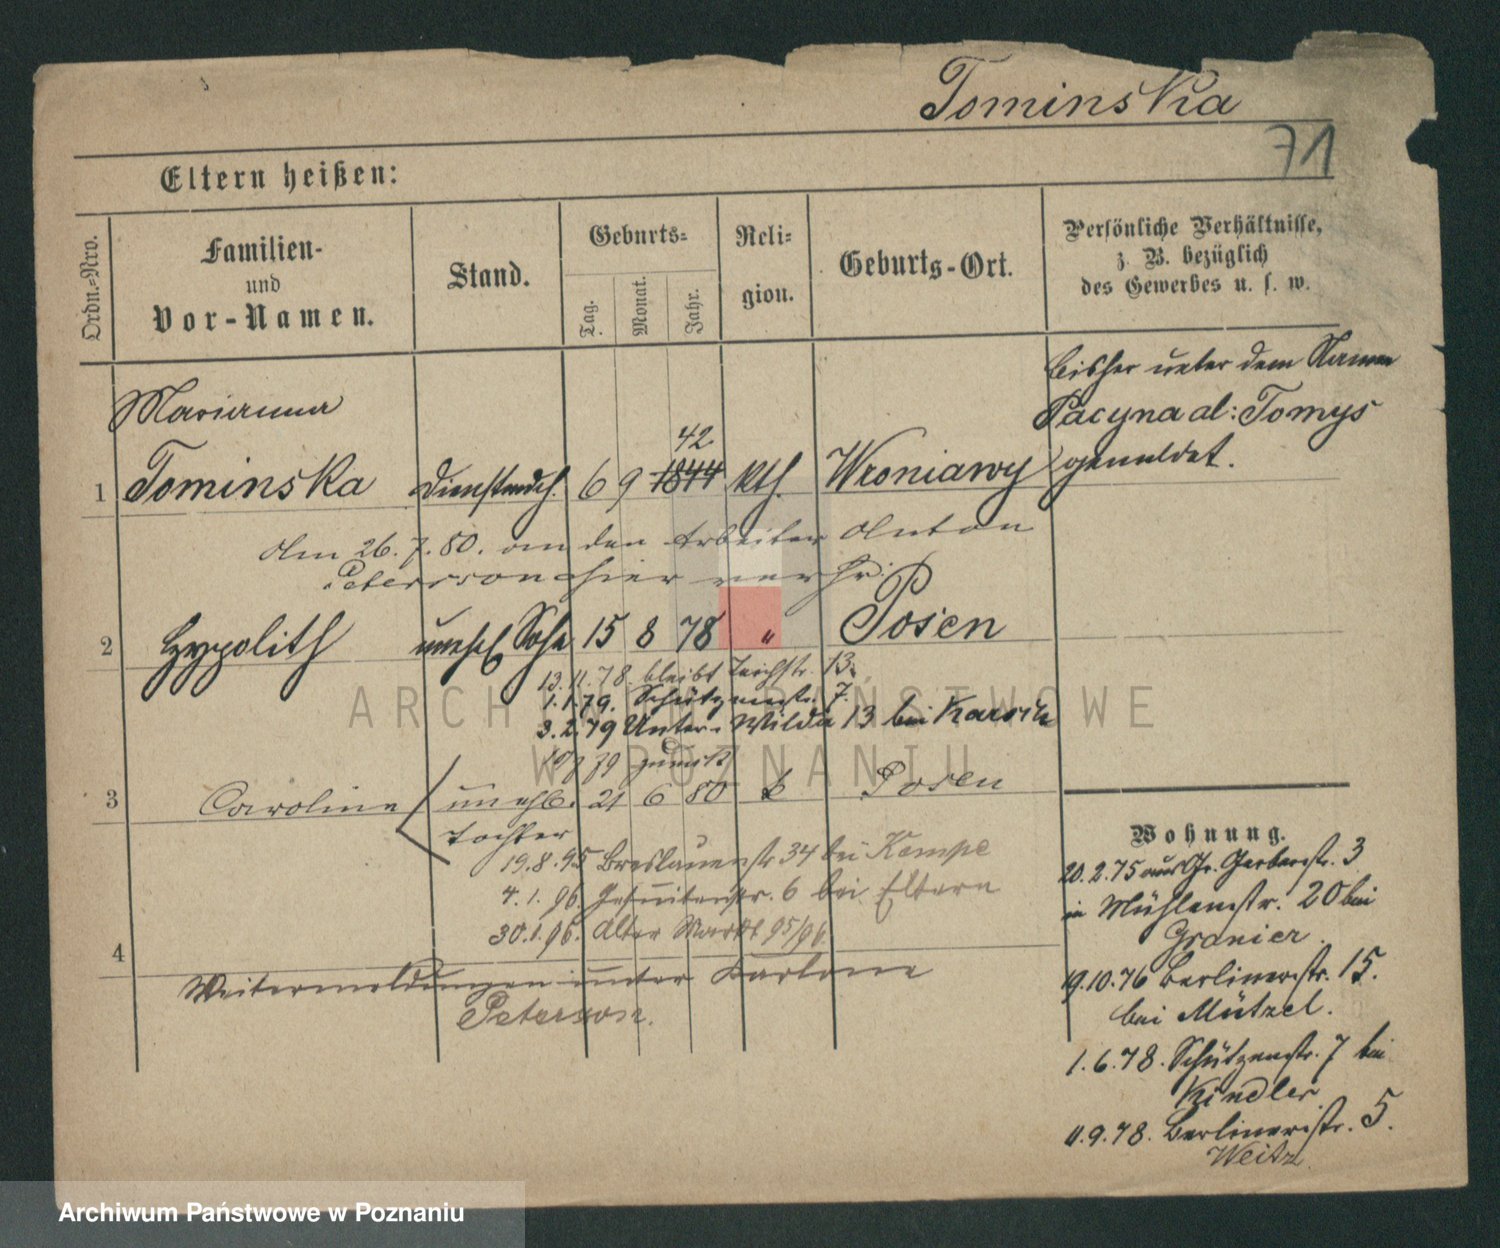 Tominska
71
Eltern heißen:
Ordn.-Nro.
Familien-
und
Vor-Namen.
Stand.
Geburts-
Tag.
Monat.
Jahr.
Reli-
gion.
Geburts-Ort.
Persönliche Verhältnisse,
z. B. bezüglich
des Gewerbes u. s. w.
bisher unter dem Namen
Pacyna al: Tomys
gemeldet.
Marianna
42
1 Tominska Dienstmdch. 6 9 1844 kth. Wroniawy
Am 26. 7. 80. an den Arbeiter Anton
Peterson hier verhr.
2 Hypolith unehel Sohn 15 8 78 " Posen
13.11.78. bleibt Teichstr. 13.
1.1.79. Schützenstr. 7.
3.2.79 Unter-Wilda 13 bei
79 zurück
3 Caroline unehl. 21 6 80 k Posen
Tochter
19.8.95 Breslauerstr 34 bei Kempe
4.1.96. Jesuitenstr. 6 bei Eltern
30.1.96. Alter Markt 95/96.
4
Weitermeldungen unter Karoline
Peterson.
Wohnung.
20.2.75 aus Gr. Gerberstr. 3
in Mühlenstr. 20 bei
Granier.
19.10.76 Berlinerstr. 15.
bei Mützel.
1.6.78. Schützenstr. 7 bei
Kindler
11.9.78. Berlinerstr. 5.
Weitz
ARCHIWUM PAŃSTWOWE
W POZNANIU
Archiwum Państwowe w Poznaniu